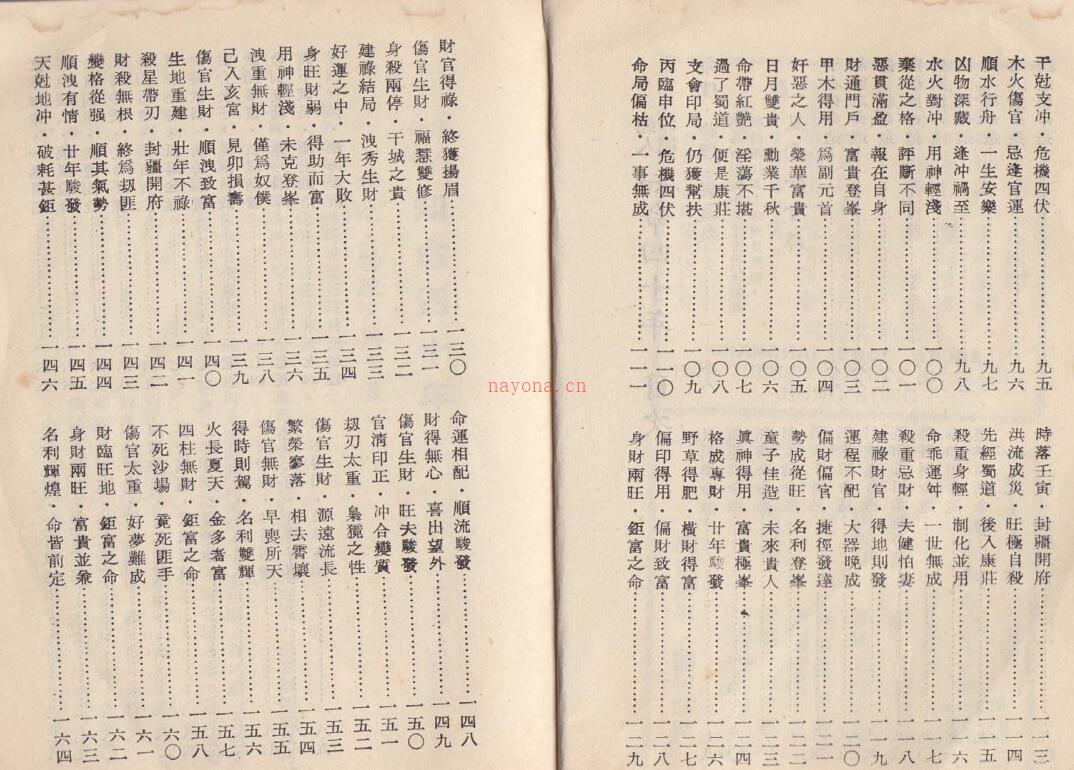 干尅支冲・危機四伏…………九五
木火傷官・忌逢官運…………九六
順水行舟・一生安樂…………九七
凶物深藏・逢冲禍至…………九八
水火對冲・用神輕淺…………一〇〇
棄從之格・評斷不同…………一〇一
惡貫滿盈・報在自身…………一〇二
財通門戶・富貴登峯…………一〇三
甲木得用・爲副元首…………一〇四
好惡之人・榮華富貴…………一〇五
日月雙貴・勳業千秋…………一〇六
命帶紅艷・淫蕩不堪…………一〇七
過了蜀道・便是康莊…………一〇八
支會印局・仍獲幫扶…………一〇九
丙臨申位・危機四伏…………一一〇
命局偏枯・一事無成…………一一一
時落壬寅・封疆開府…………一一三
洪流成災・旺極自殺…………一一四
先經蜀道・後入康莊…………一一五
殺重身輕・制化並用…………一一六
命乖運舛・一世無成…………一一七
殺重忌財・夫健怕妻…………一一八
建祿財官・得地則發…………一一九
運程不配・大器晚成…………一二〇
偏財偏官・捷徑發達…………一二一
勢成從旺・名利登峯…………一二二
童子佳造・未來貴人…………一二三
眞神得用・富貴極峯…………一二四
格成專財・廿年駿發…………一二六
野草得肥・橫財得富…………一二七
偏印得用・偏財致富…………一二八
身財兩旺・鉅富之命…………一二九
財官得祿・終獲揚眉…………一三〇
傷官生財・福慧雙修…………一三一
身殺兩停・干城之貴…………一三二
建祿結局・洩秀生財…………一三三
好運之中・一年大敗…………一三四
身旺財弱・得助而富…………一三五
用神輕淺・未克登峯…………一三六
洩重無財・僅爲奴僕…………一三八
己入亥宮・見卯損壽…………一三九
傷官生財・順洩致富…………一四〇
生地重建・壯年不祿…………一四一
殺星帶刃・封疆開府…………一四二
財殺無根・終爲刼匪…………一四三
變格從强・順其氣勢…………一四四
順洩有情・廿年駿發…………一四五
天尅地冲・破耗甚鉅…………一四六
命運相配・順流駿發…………一四八
財得無心・喜出望外…………一四九
傷官生財・旺夫駿發…………一五〇
官淸印正・冲合變質…………一五一
刼刃太重・梟獍之性…………一五二
傷官生財・源遠流長…………一五三
繁榮寥落・相去霄壤…………一五四
傷官無財・早喪所天…………一五五
得時則駕・名利雙輝…………一五六
火長夏天・金多者富…………一五七
四柱無財・鉅富之命…………一五八
不死沙場・竟死匪手…………一六〇
傷官太重・好夢難成…………一六一
財臨旺地・鉅富之命…………一六二
身財兩旺・富貴並兼…………一六三
名利輝煌・命皆前定…………一六四
nayona.cn